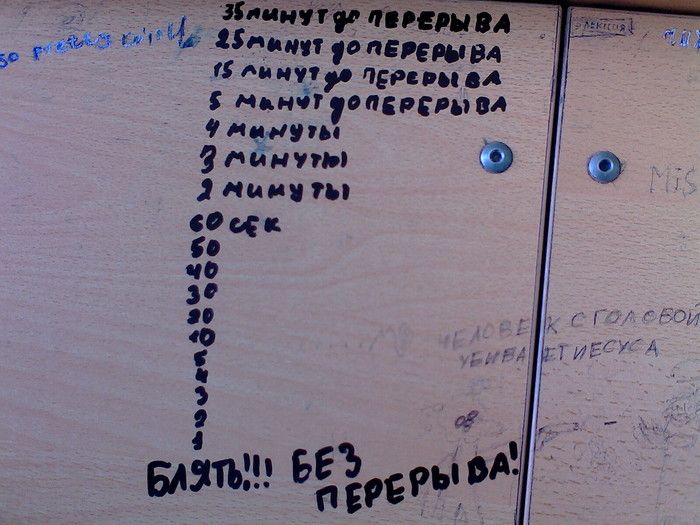 35 минут до ПЕРЕРЫВА
25 минут до ПЕРЕРЫВА
15 минут до ПЕРЕРЫВА
5 минут до ПЕРЕРЫВА
4 минуты
3 минуты
2 минуты
60 СЕК
50
40
30
20
10
5
4
3
2
1
БЛЯТЬ!!! БЕЗ
ПЕРЕРЫВА!
so pretty
ЛЕКЦИЯ
MIS
ЧЕЛОВЕК С ГОЛОВОЙ
УБИВАЕТ ИЕСУСА
08